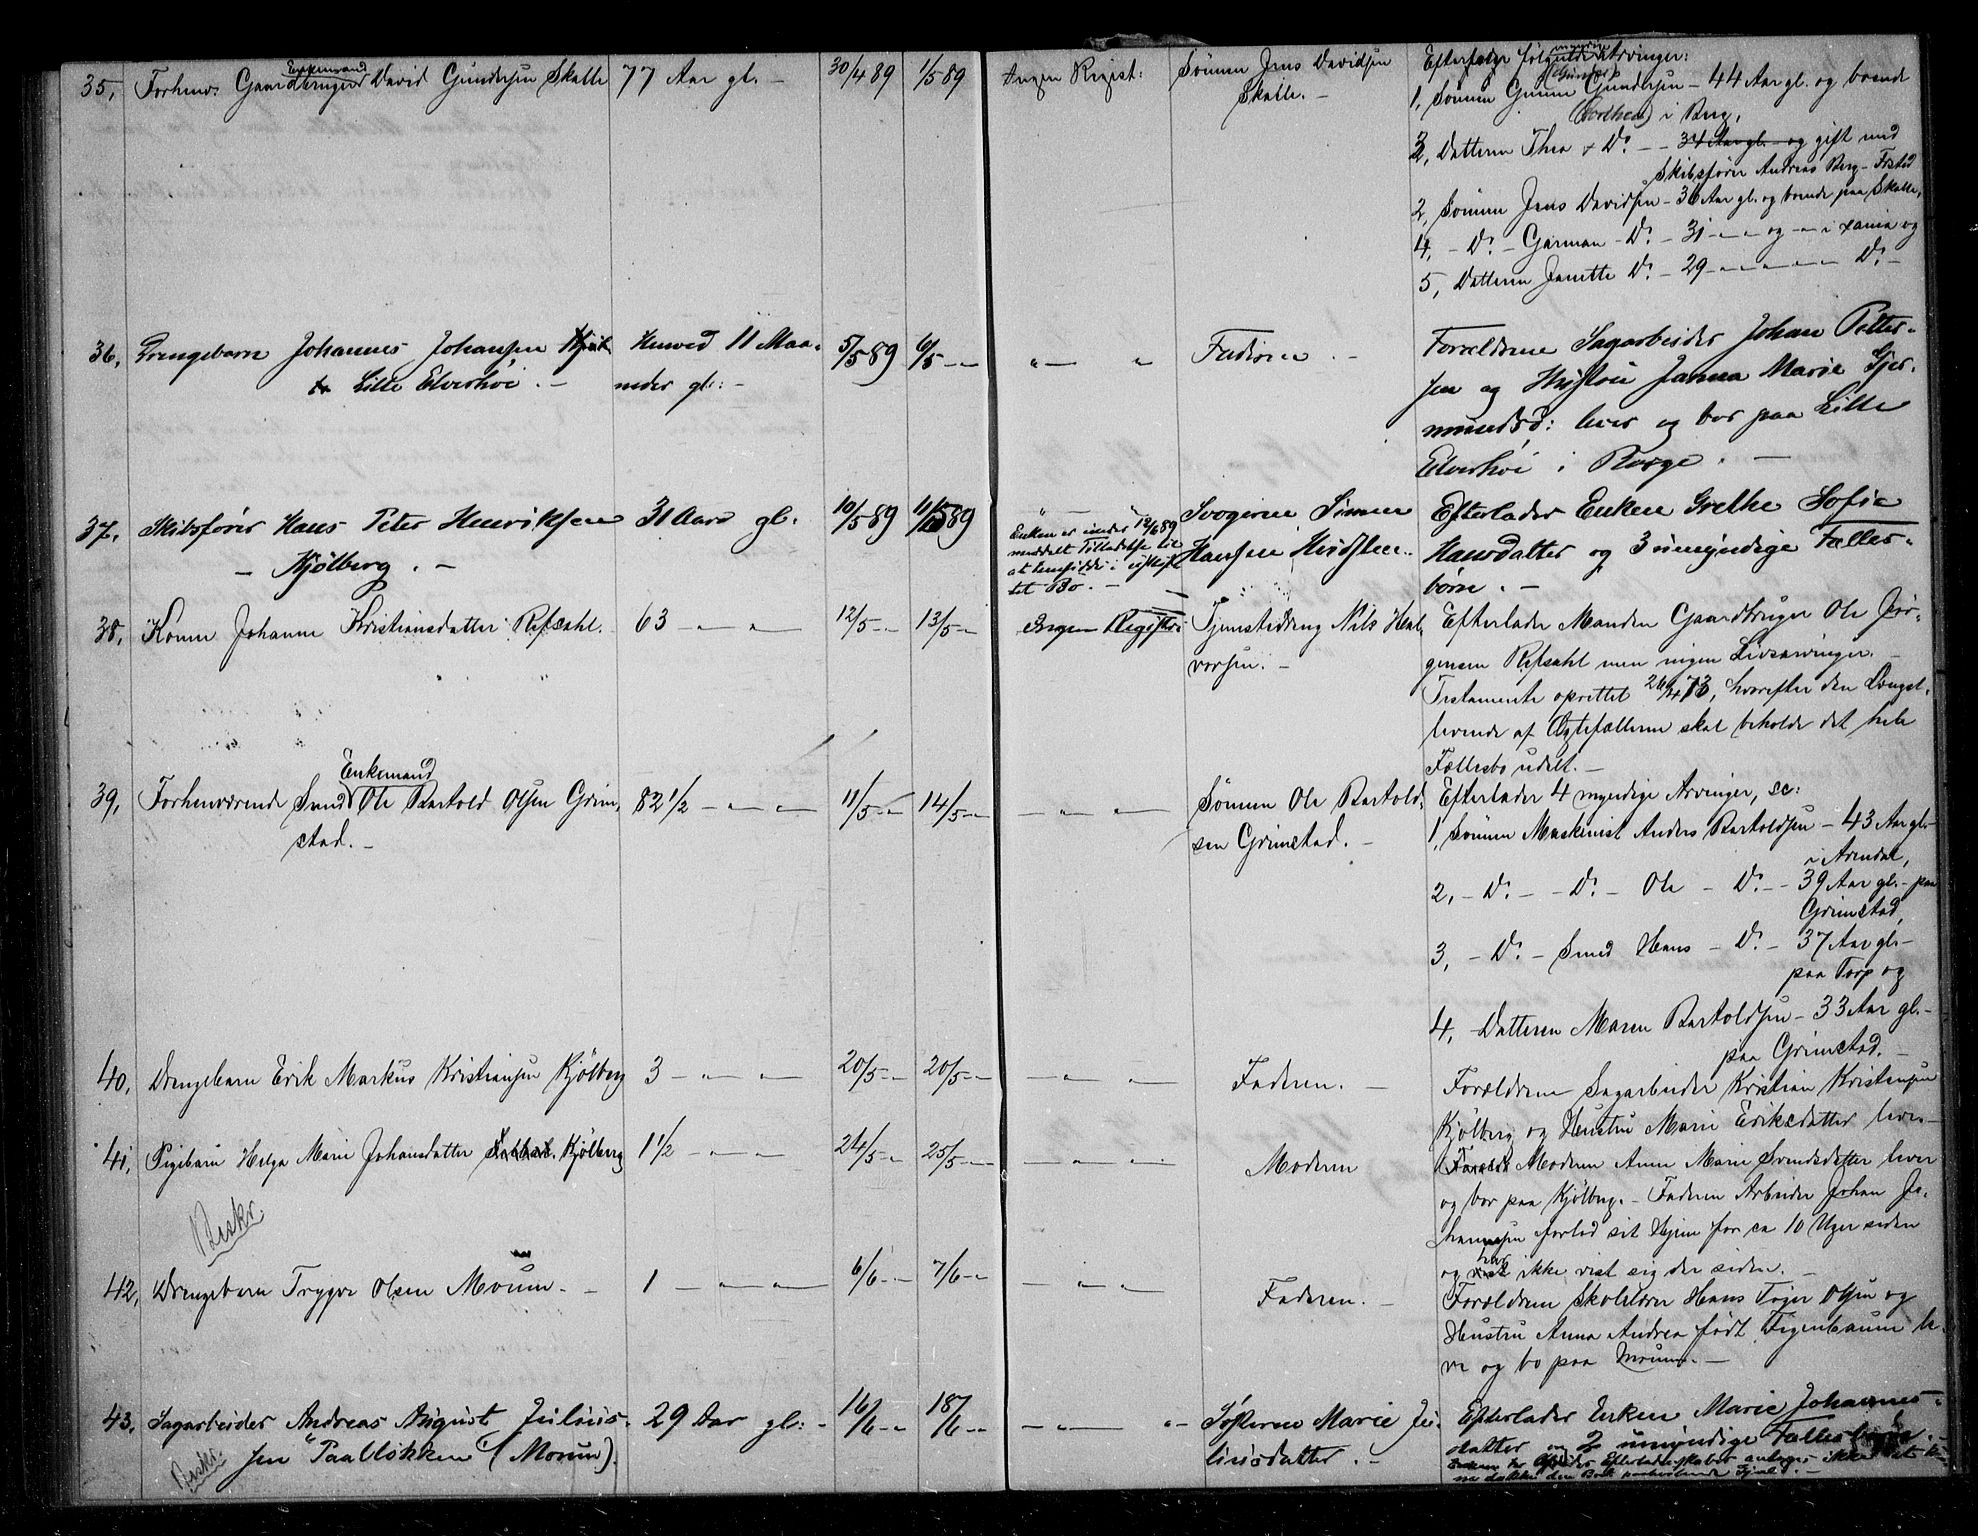 35, Forhenv. Gaardbruger Enkemand David Gundersen Skalle 77 Aar gl. – 30/4 89 1/5 89 Ingen Regist: Sønnen Jens Davidsen
Skalle. –
Efterfølge følgende myndige Arvinger:
1, Sønnen Gunder Gundersen – 44 Aar gl. og boende
i Berg,
3, Datteren Thea D⁰. – 34 Aar gl. og gift med
Skibsfører Andreas Berg – Frstad
2, Sønnen Jens Davidsen – 36 Aar gl. og boende paa Skalle,
4, – D⁰. – Garman – D⁰. – 31 – „ – og – „ – i Xania og
5, Datteren Janette D⁰. – 29 – „ – „ – „ – D⁰. –
36, Drengebarn Johannes Johansen
Lille Elverhöi. –
Henved 11 Maa-
neder gl: –
5/5 89 6/5 – „ „ — „ Faderen. –
Forældrene Sagarbeider Johan Petter-
sen og Hustru Janna Marie Gjer-
mundsd: lever og bor paa Lille
Elverhöi i Borge. –
37, Skibsfører Hans Peter Henriksen
– Kjölberg. –
31 Aar gl. 10/5 89 11/5 89
Enken er under 12/6 89
meddelt Tilladelse til
at hensidde i uskif-
tet Bo. –
Svogeren Simen
Hansen Hvidsten.
Efterlader Enken Grethe Sofie
Hansdatter og 3 umyndige Fælles-
børn. –
38, Konen Johanne Kristiansdatter Refsahl. 63 – „ – „ 12/5 – „ 13/5 – „ Ingen Registr: Tjenstedreng Nils Hal-
vorsen. –
Efterlader Manden Gaardbruger Ole Jör-
gensen Refsahl men ingen Livsarvinger. –
Testamente oprettet 26/4 73, hvorefter den Længst-
levende af Ægtefællerne skal beholde det hele
Fællesbo udelt. –
39, Forhenværende Smed Enkemand Ole Bartold Olsen Grim-
stad. –
82 1/2 – „ – „ 11/5 – „ 14/5 – „ – „ – „ Sønnen Ole Bartold-
sen Grimstad. –
Efterlader 4 myndige Arvinger, sc:
1, Sønnen Maskinist Anders Bartoldsen – 43 Aar gl. –
i Arendal,
2, – D⁰. – – D⁰. – Ole – D⁰. – – 39 Aar gl. – paa
Grimstad,
3, – D⁰. – Smed Hans – D⁰. – 37 Aar gl. –
paa Torp og
4, Datteren Maren Bartoldsen – 33 Aar gl. –
paa Grimstad. –
40, Drengebarn Erik Markus Kristiansen Kjölberg 3 – „ – „ 20/5 – „ 20/5 – „ – „ – „ Faderen. –
Forældrene Sagarbeider Kristian Kristensen
Kjölberg og Hustru Marie Eriksdatter lever –
41, Pigebarn Helga Marie Johansdatter Kjölberg 1 1/2 – „ – „ 24/5 – „ 25/5 – „ – „ – „ Moderen
Moderen Anne Marie Svendsdatter lever
og bor paa Kjölberg. – Faderen Arbeider Johan Jo-
hannesen forlod sit Hjem for ca 10 Uger siden
og har ikke vist sig der siden. –
Beskr.
42, Drengebarn Trygve Olsen Moum. – 1 – „ – „ 6/6 – „ 7/6 – „ – „ – „ Faderen. –
Forældrene Skolelærer Hans Toger Olsen og
Hustru Anna Andrea født Feigenbaum le-
ve og bo paa Moum. –
43, Sagarbeider Andreas August Julius-
sen Paalløkken (Moum).
Beskr.
29 Aar gl: – 16/6 – „ 18/6 – „ – „ – „ – Søsteren Marie Ju-
liusdatter. –
Efterlader Enken Marie Johannes-
datter og 2 umyndige Fællesbørn. –
Efterladenskaber antages ikke at kun-
ne dække den Bok paahvilende Gjæld. –